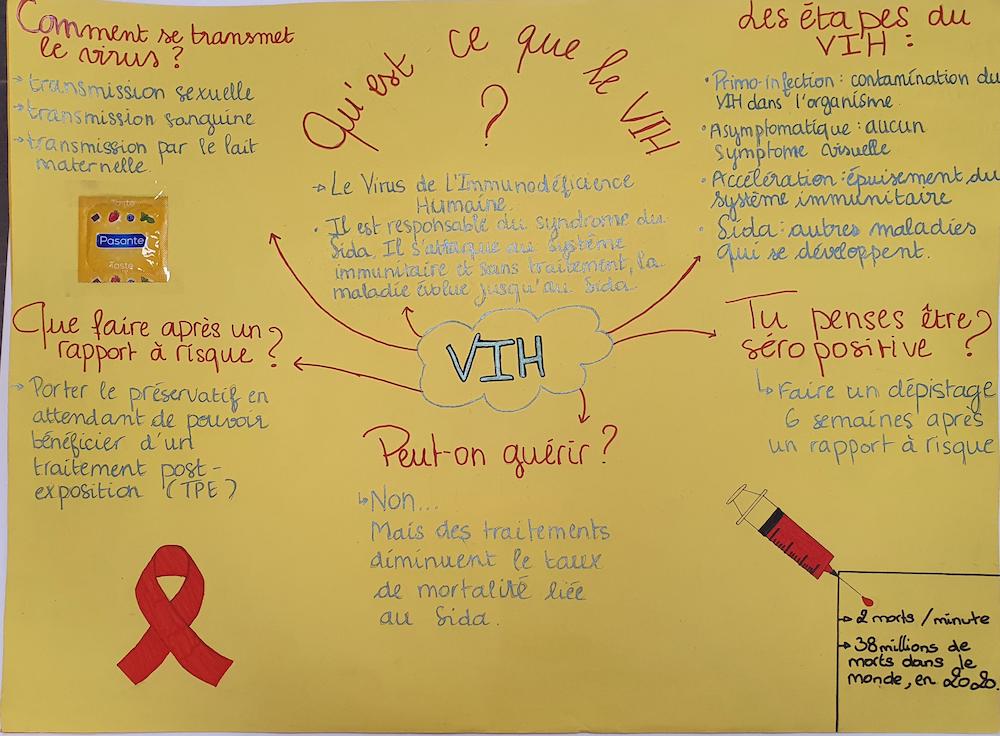 Comment se transmet
le virus ?
→ transmission sexuelle
→ transmission sanguine
→ transmission par le lait
maternelle.
Taste
Pasante
Taste
Qu'est ce que le VIH
?
→ Le Virus de l'Immunodéficience
Humaine.
• Il est responsable du syndrome du
Sida. Il s'attaque au système
immunitaire et sans traitement, la
maladie évolue jusqu'au Sida.
Les étapes du
VIH :
• Primo-infection : contamination du
VIH dans l'organisme
• Asymptomatique : aucun
symptome visuelle
• Accélération : épuisement du
système immunitaire
• Sida : autres maladies
qui se développent.
VIH
Que faire après un
rapport à risque ?
→ Porter le préservatif en
attendant de pouvoir
bénéficier d'un
traitement post-
exposition (TPE)
Tu penses être
séropositive ?
↳ Faire un dépistage
6 semaines après
un rapport à risque
Peut-on guérir ?
↳ Non...
Mais des traitements
diminuent le taux
de mortalité liée
au Sida.
→ 2 morts / minute
→ 38 millions de
morts dans le
monde, en 2020.